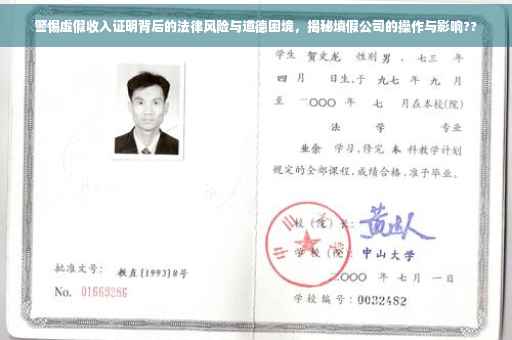 警惕虚假收入证明背后的法律风险与道德困境，揭秘填假公司的操作与影响??
学生 贺文龙 性别男 、七三 年
四 月 日生,于 九七 年 九 月
至 二000 年 七 月在本校(院)
法 学 专业
业余 学习,修完 本 科教学计划
规定的全部课程,成绩合格,准予毕业。
校(院)长:
学校(院): 中山大学
二000 年 七月 一日
批准文号: 教直[1993]8号
No. 01669286
学校编号: 0032482